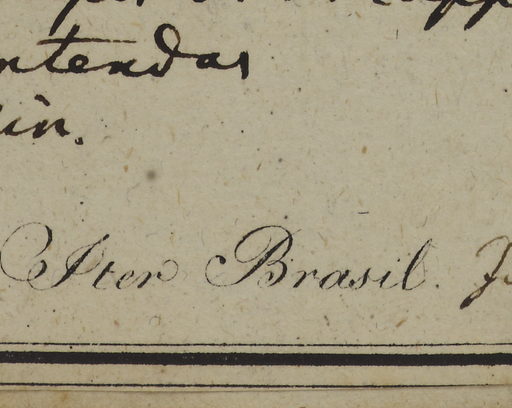 ntendas
in.
Iter Brasil.